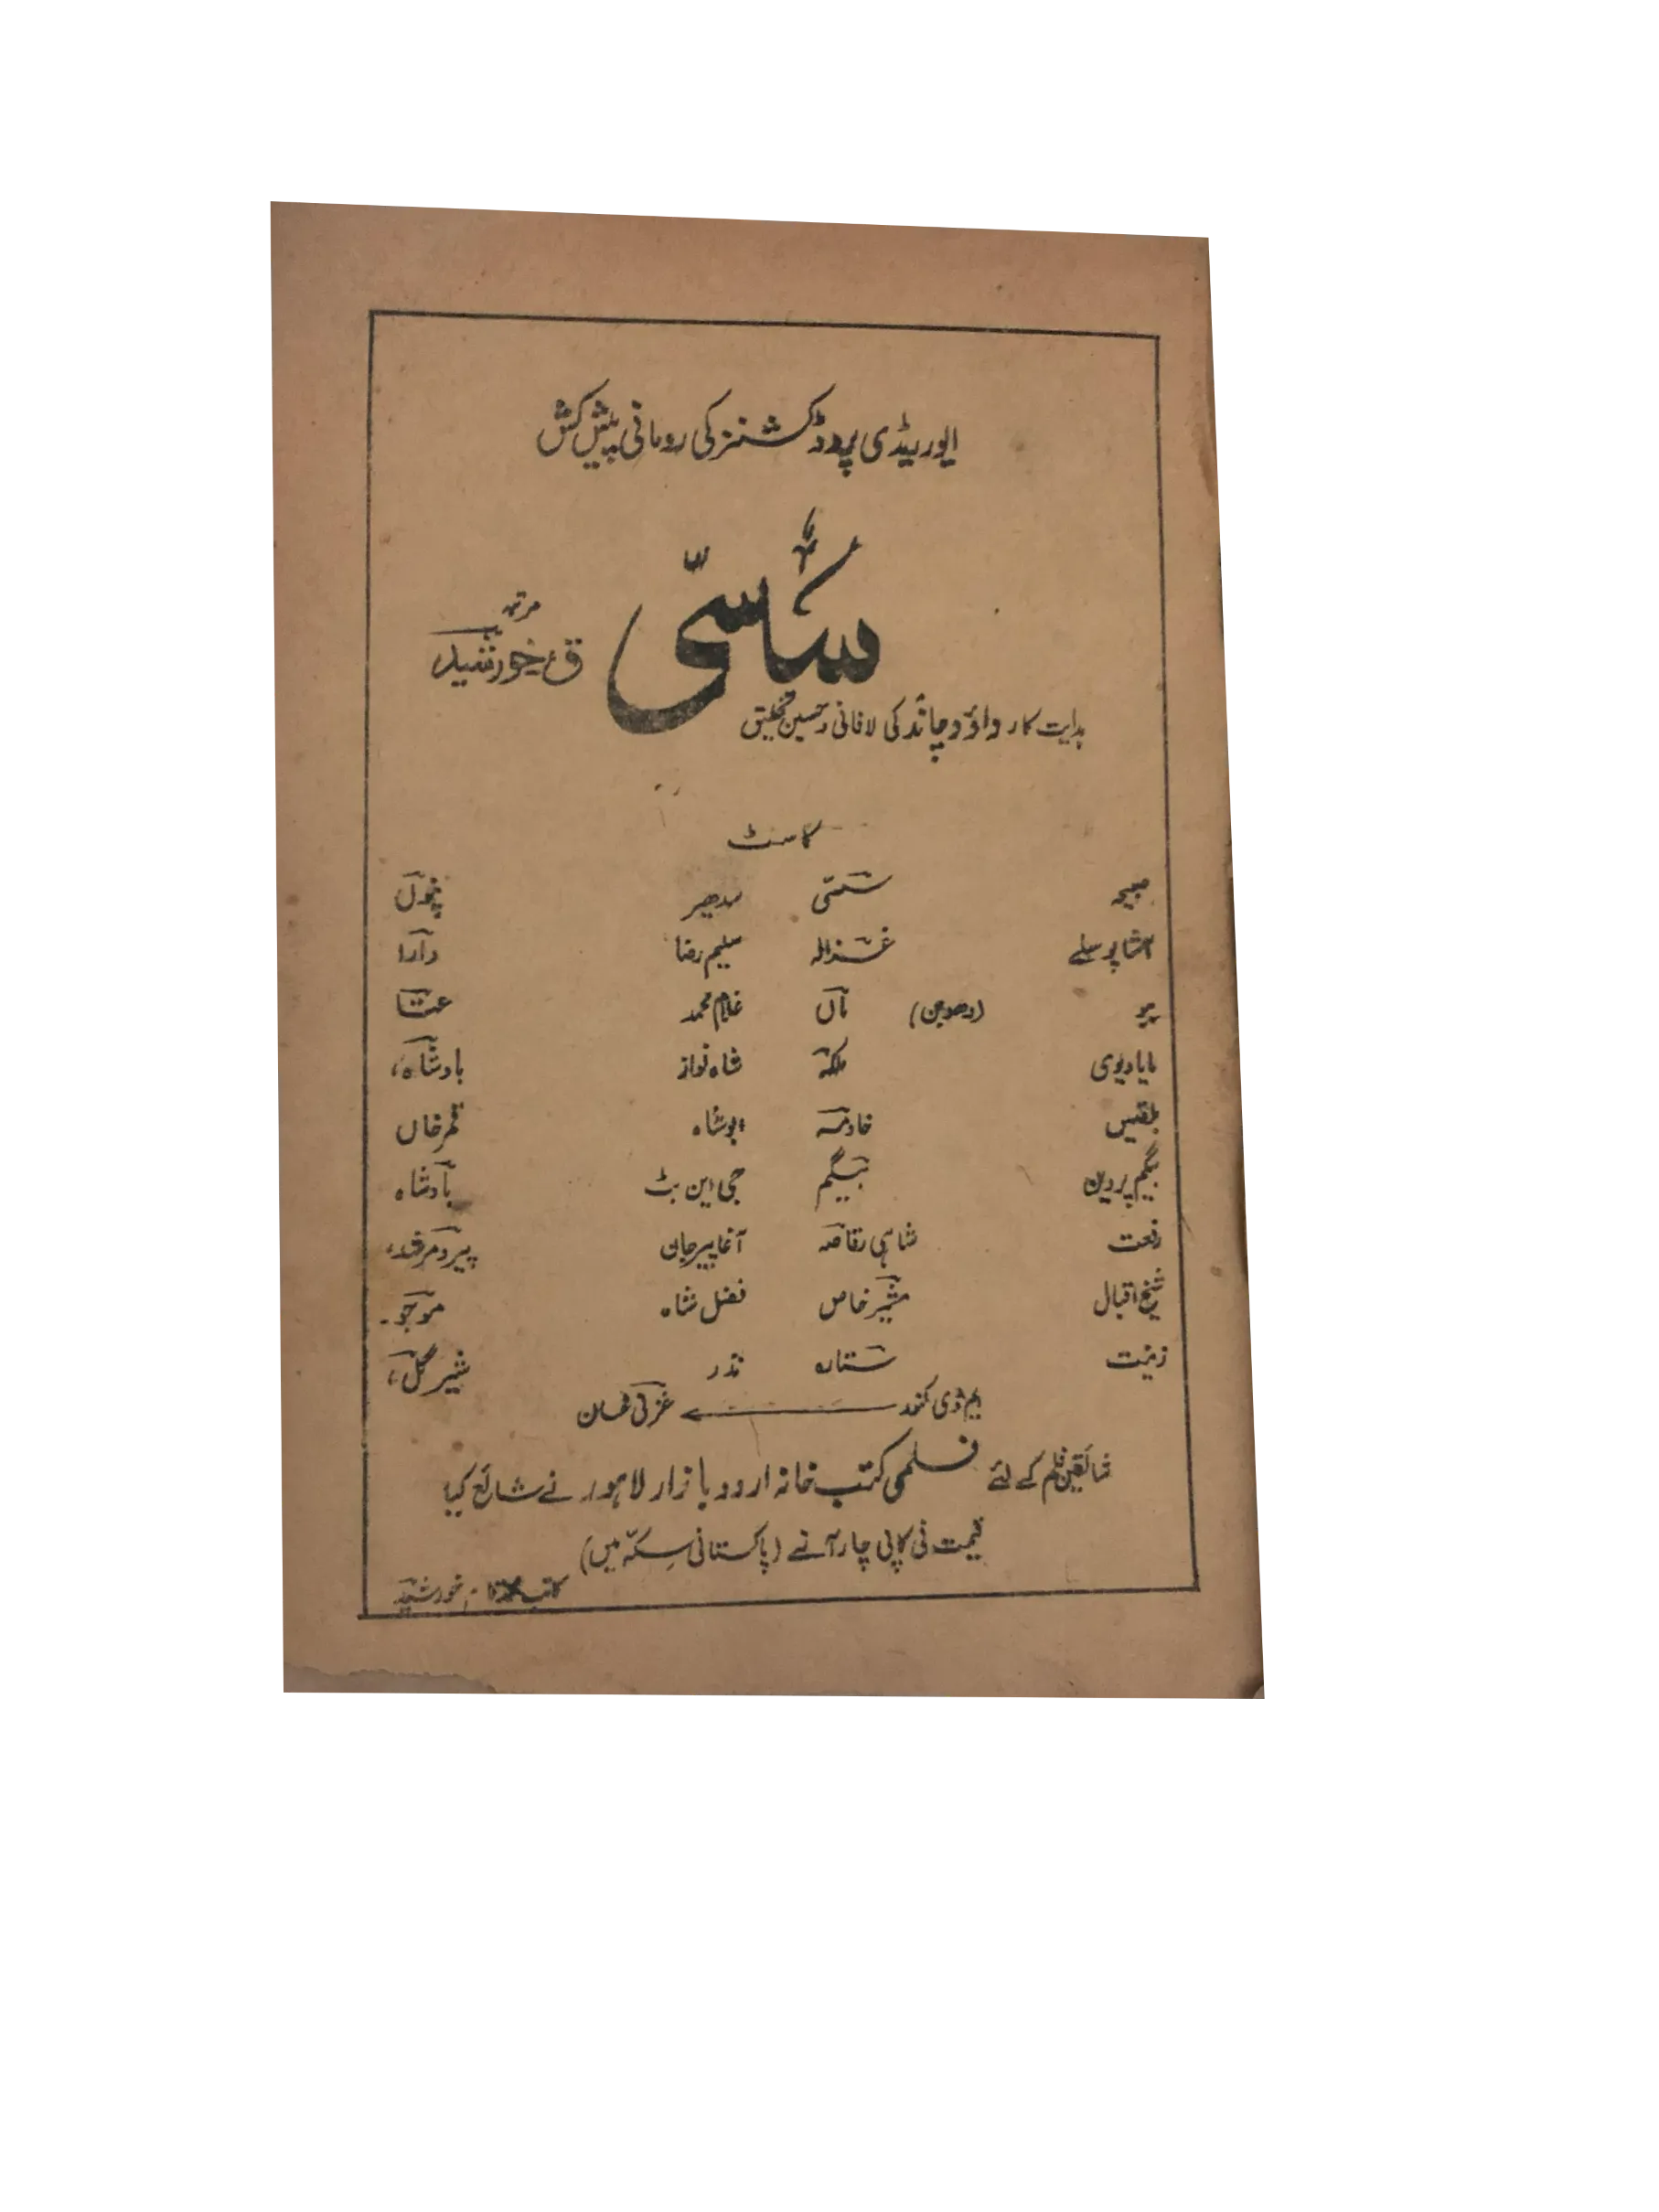 ایوریڈی پروڈکشنز کی رومانی پیش کش
سسّی
مرتبہ
ق خورشید
ہدایت کار داؤد چاند کی لافانی و حسین تخلیق
کاسٹ
صبیحہ سسّی سدھیر پنوّں
آشا پوسلے غزالہ سلیم رضا دارا
ببو (دھوبن) ماں غلام محمد عتا
مایا دیوی ملکہ شاہ نواز بادشاہ،
بلقیس خادمہ ابو شاہ قمر خاں
بیگم پروین بیگم جی این بٹ بادشاہ
رفعت شاہی رقاصہ آغا پیر جان پیر و مرشد،
شیخ اقبال مشیر خاص فضل شاہ موجو۔
زینت ستارہ نذر شیر گل،
ایم ڈی کنور غزنی خان
شائقین فلم کے لئے فلمی کتب خانہ اردو بازار لاہور نے شائع کیا
قیمت فی کاپی چار آنے (پاکستانی سکّہ میں)
کاتب خورشید